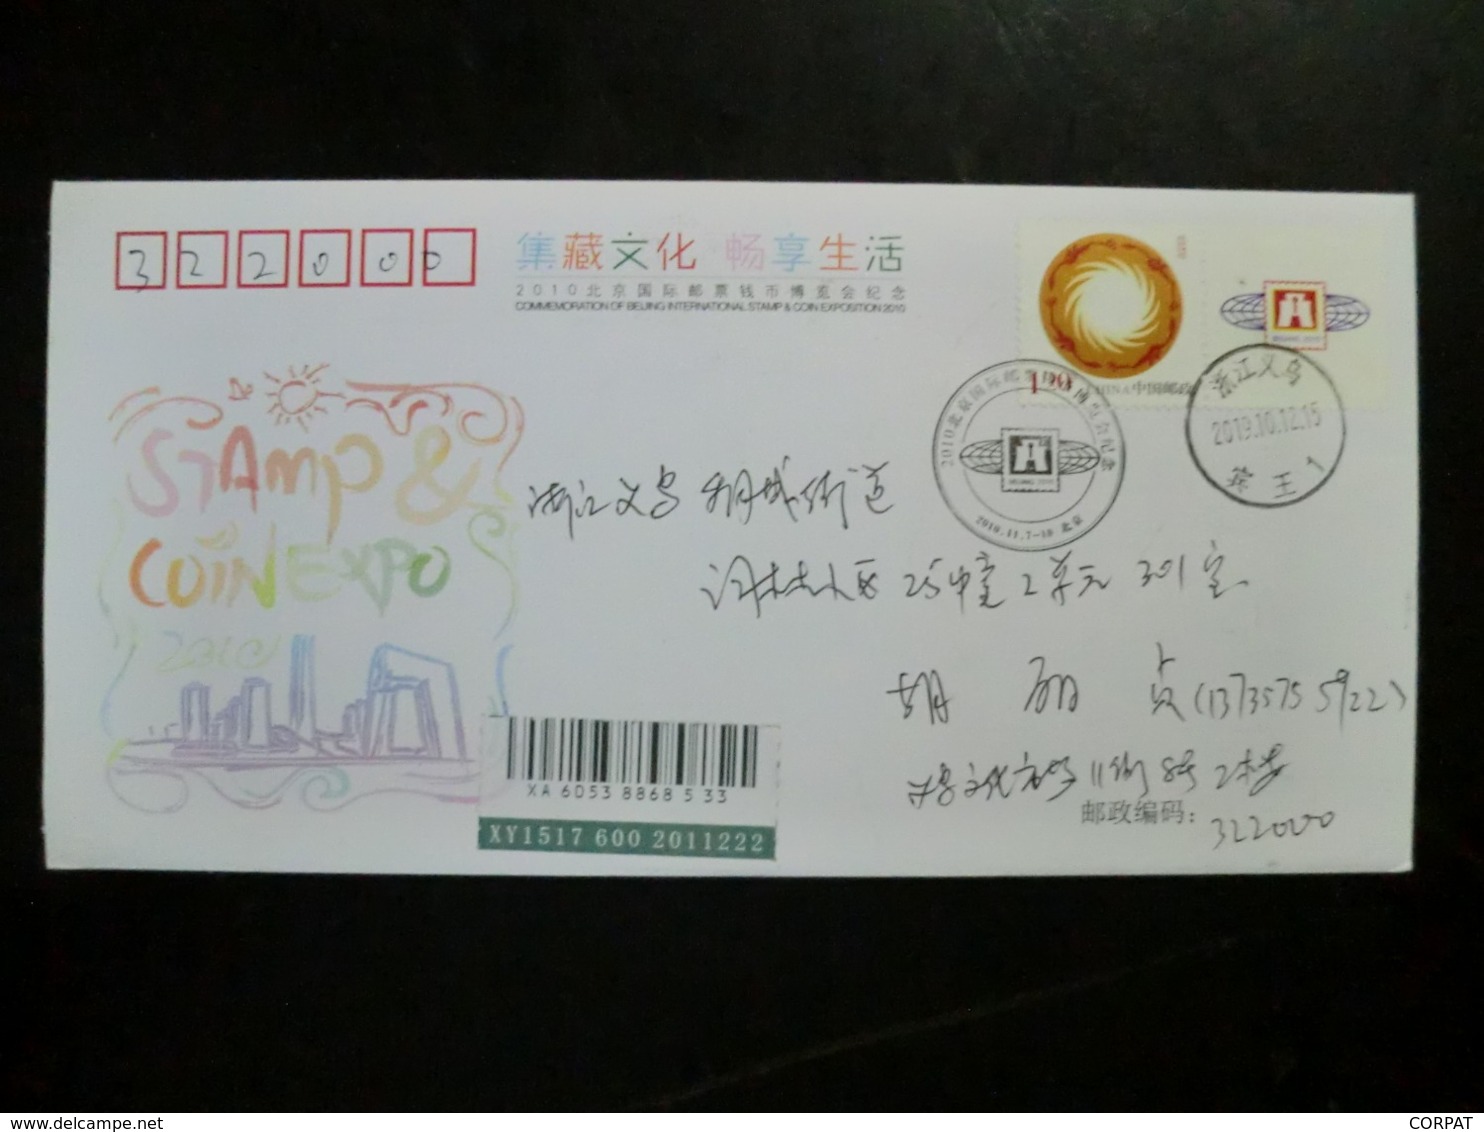 322000
集藏文化 畅享生活
2010北京国际邮票钱币博览会纪念
COMMEMORATION OF BEIJING INTERNATIONAL STAMP & COIN EXPOSITION 2010
1.20
CHINA中国邮政
BEIJING 2010
STAMP &
COIN EXPO
2010
2010北京国际邮票钱币博览会纪念
BEIJING 2010
2010.11.7-10 北京
浙江义乌
2019.10.12.15
宾王1
浙江义乌 稠城街道
小区25幢2单元301室
胡 丽 贞(13735755922)
义乌文化市场11街8号2楼
邮政编码:322000
XA 6053 8868 5 33
XY1517 600 2011222
delcampe.net
CORPAT